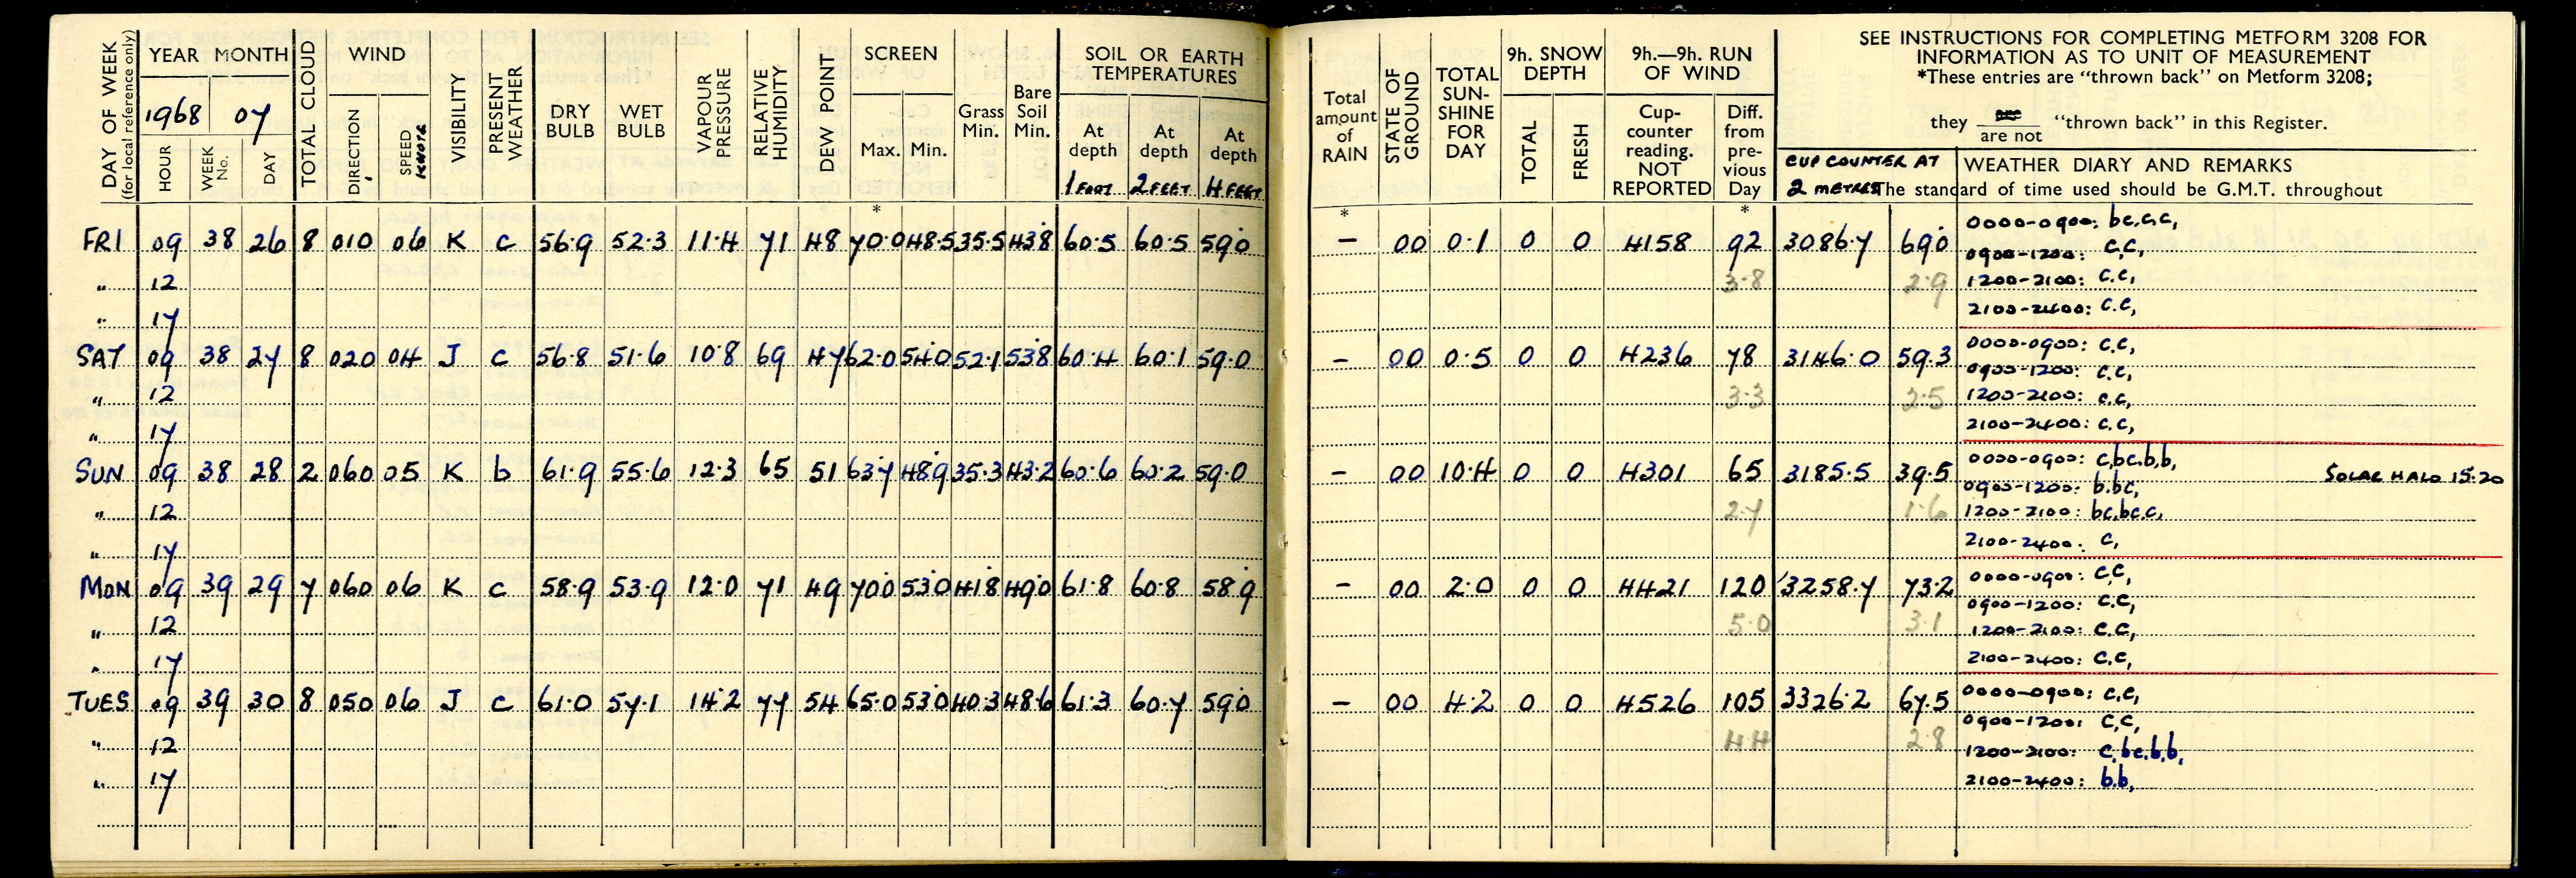 DAY OF WEEK (for local reference only)
YEAR MONTH
1968 07
HOUR WEEK No. DAY
TOTAL CLOUD
WIND
DIRECTION SPEED KNOTS
VISIBILITY
PRESENT WEATHER
DRY BULB
WET BULB
VAPOUR PRESSURE
RELATIVE HUMIDITY
DEW POINT
SCREEN
Max. Min.
Grass Min.
Bare Soil Min.
SOIL OR EARTH TEMPERATURES
At depth 1 FOOT
At depth 2 FEET
At depth 4 FEET
Total amount of RAIN
STATE OF GROUND
TOTAL SUN-SHINE FOR DAY
9h. SNOW DEPTH
TOTAL FRESH
9h.—9h. RUN OF WIND
Cup-counter reading. NOT REPORTED
Diff. from pre-vious Day
SEE INSTRUCTIONS FOR COMPLETING METFORM 3208 FOR
INFORMATION AS TO UNIT OF MEASUREMENT
*These entries are "thrown back" on Metform 3208;
they are are not "thrown back" in this Register.
CUP COUNTER AT 2 METRES
WEATHER DIARY AND REMARKS
The standard of time used should be G.M.T. throughout
* * *
FRI 09 38 26 8 010 06 K c 56.9 52.3 11.4 71 48 70.0 48.5 35.5 43.8 60.5 60.5 59.0 – 00 0.1 0 0 4158 92 3086.7 69.0 0000-0900: bc,c,c,
0900-1200: c,c,
" 12 3.8 2.9 1200-2100: c.c,
" 17 2100-2400: c.c,
SAT 09 38 27 8 020 04 J c 56.8 51.6 10.8 69 47 62.0 54.0 52.1 53.8 60.4 60.1 59.0 – 00 0.5 0 0 4236 78 3146.0 59.3 0000-0900: c.c,
0900-1200: c.c,
" 12 3.3 2.5 1200-2100: c.c,
" 17 2100-2400: c.c,
SUN 09 38 28 2 060 05 K b 61.9 55.6 12.3 65 51 63.7 48.9 35.3 43.2 60.6 60.2 59.0 – 00 10.4 0 0 4301 65 3185.5 39.5 0000-0900: c,bc.b,b, SOLAR HALO 15.20
0900-1200: b.bc,
" 12 2.7 1.6 1200-2100: bc,bc.c,
" 17 2100-2400: c,
MON 09 39 29 7 060 06 K c 58.9 53.9 12.0 71 49 70.0 53.0 41.8 49.0 61.8 60.8 58.9 – 00 2.0 0 0 4421 120 3258.7 73.2 0000-0900: c,c,
0900-1200: c.c,
" 12 5.0 3.1 1200-2100: c.c,
" 17 2100-2400: c.c,
TUES 09 39 30 8 050 06 J c 61.0 57.1 14.2 77 54 65.0 53.0 40.3 48.6 61.3 60.7 59.0 – 00 4.2 0 0 4526 105 3326.2 67.5 0000-0900: c,c,
0900-1200: c,c,
" 12 4.4 2.8 1200-2100: c,bc.b,b,
" 17 2100-2400: b.b,